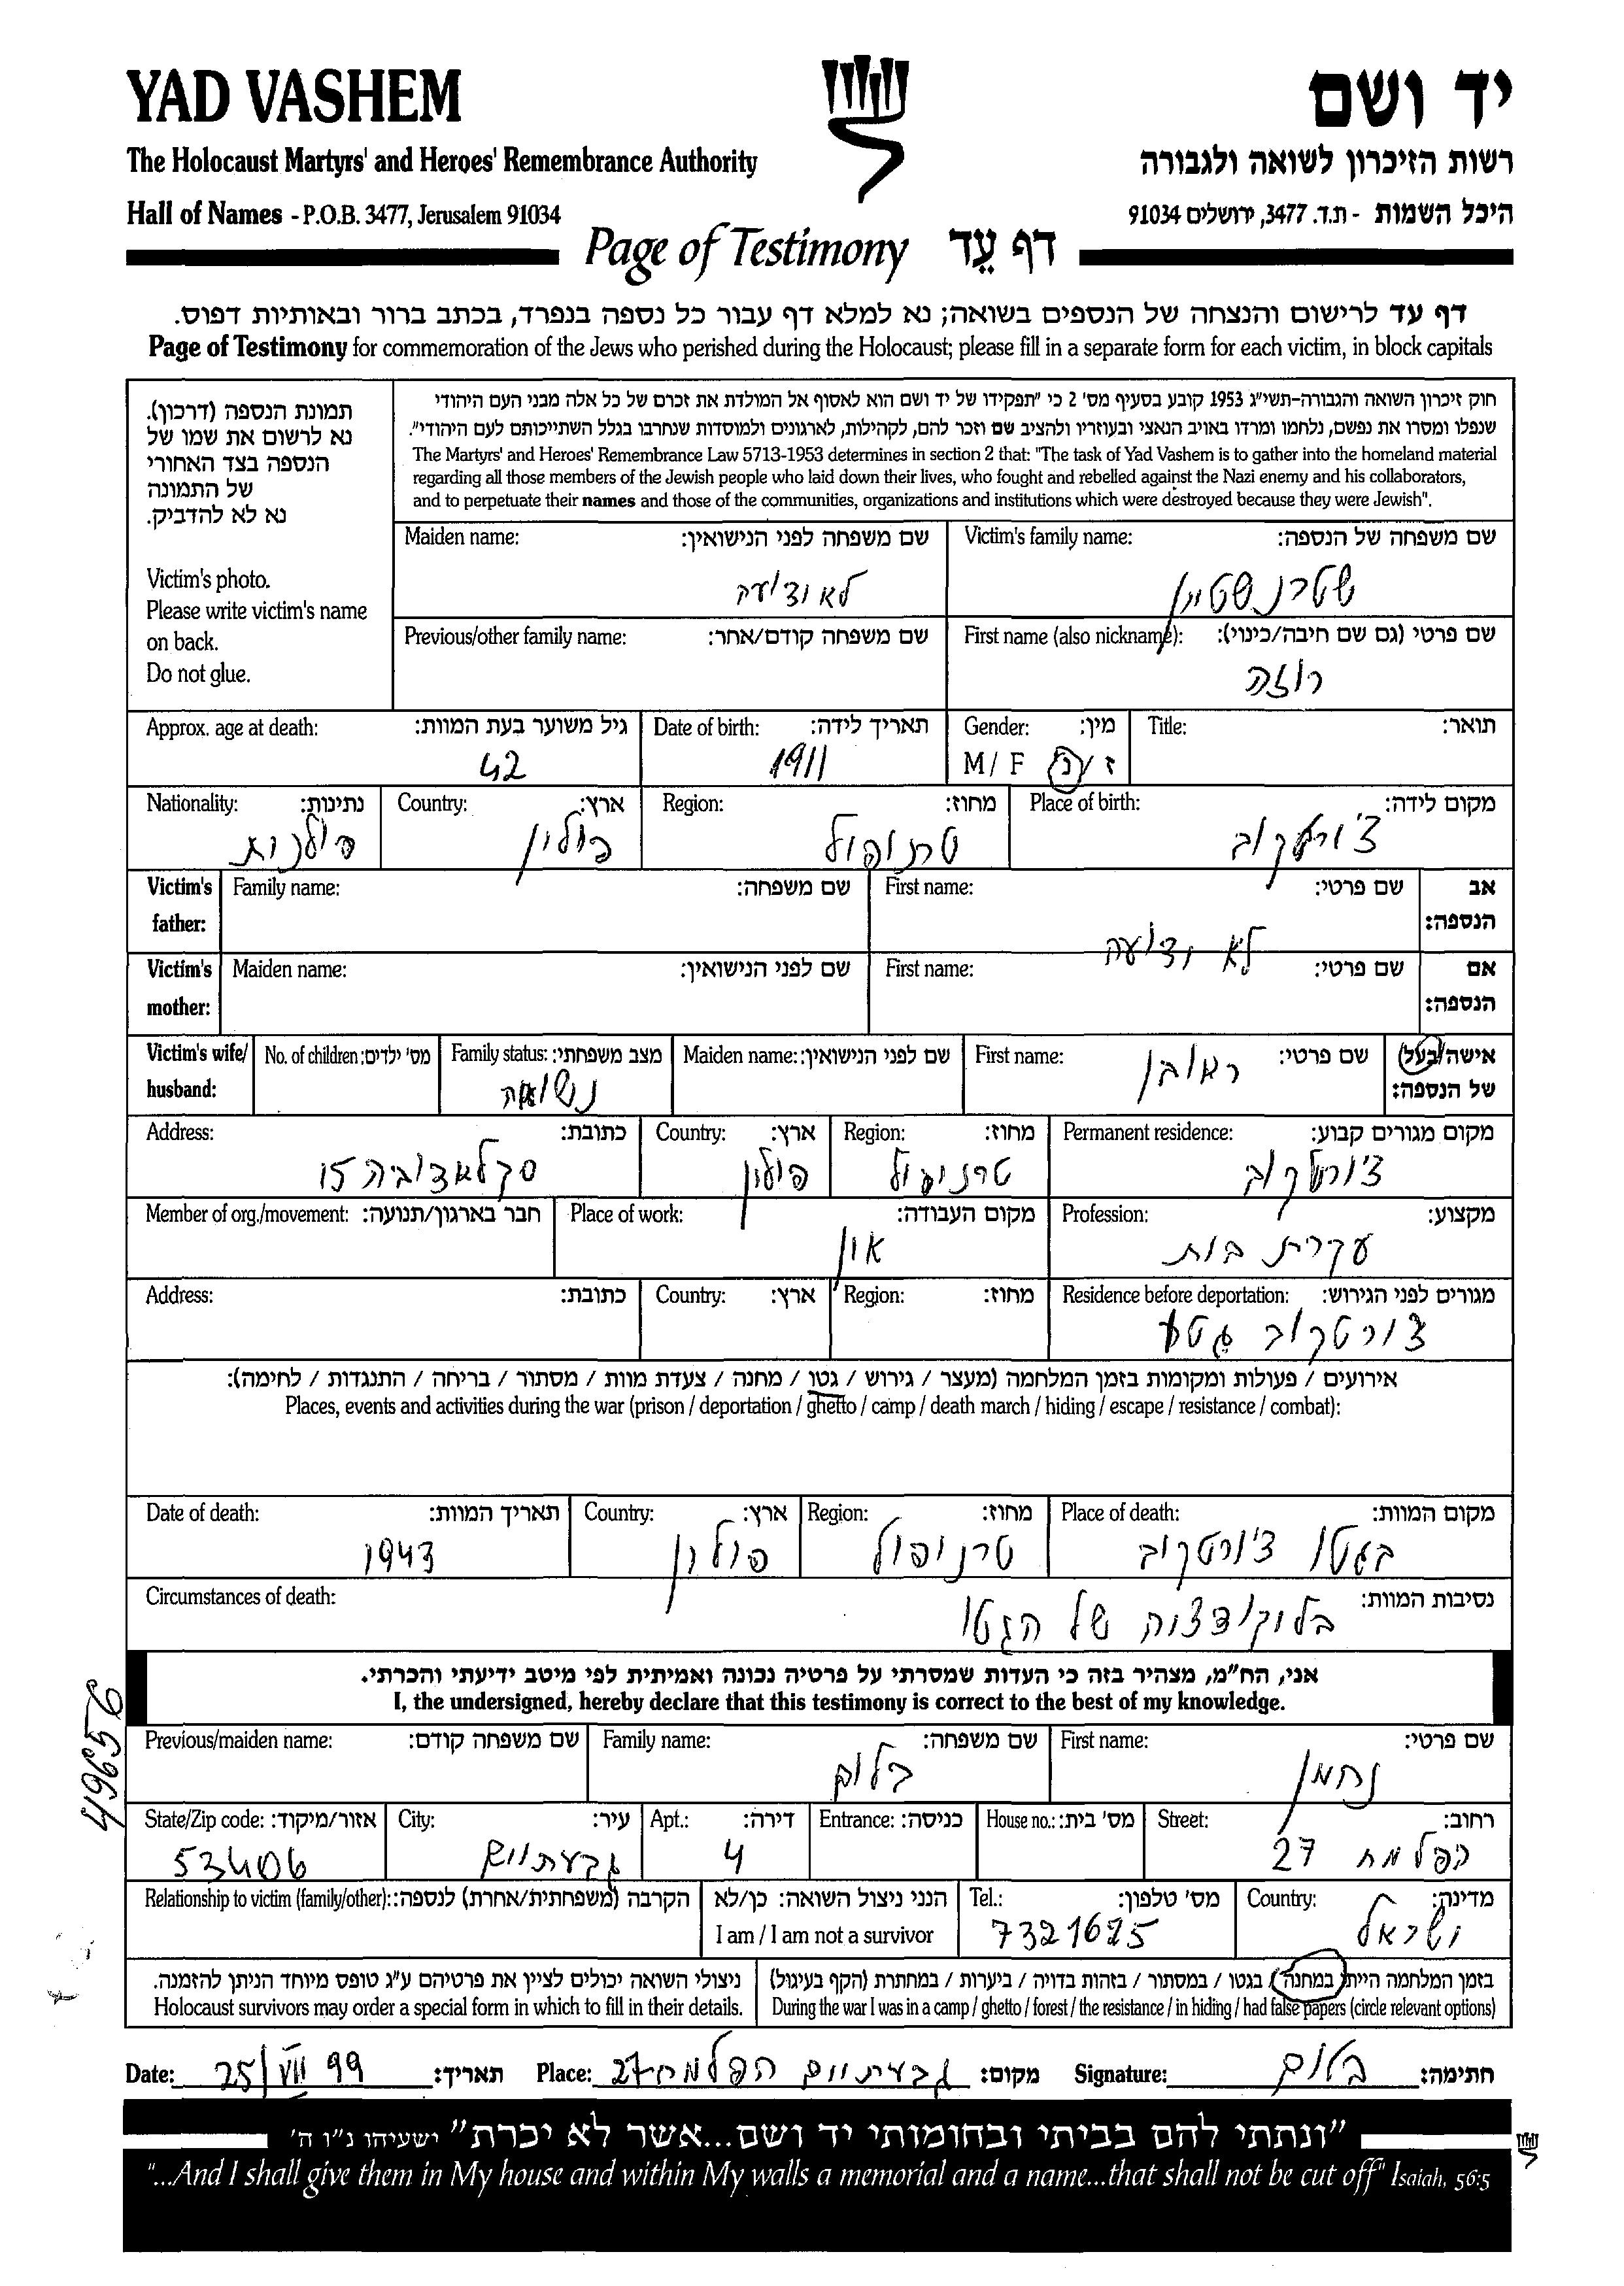 YAD VASHEM
יד ושם
The Holocaust Martyrs' and Heroes' Remembrance Authority
רשות הזיכרון לשואה ולגבורה
Hall of Names - P.O.B. 3477, Jerusalem 91034
היכל השמות - ת.ד. 3477, ירושלים 91034
Page of Testimony דף עֵד
דף עד לרישום והנצחה של הנספים בשואה; נא למלא דף עבור כל נספה בנפרד, בכתב ברור ובאותיות דפוס.
Page of Testimony for commemoration of the Jews who perished during the Holocaust; please fill in a separate form for each victim, in block capitals
תמונת הנספה (דרכון).
נא לרשום את שמו של
הנספה בצד האחורי
של התמונה
נא לא להדביק.
Victim's photo.
Please write victim's name
on back.
Do not glue.
חוק זיכרון השואה והגבורה-תשי"ג 1953 קובע בסעיף מס' 2 כי "תפקידו של יד ושם הוא לאסוף אל המולדת את זכרם של כל אלה מבני העם היהודי
שנפלו ומסרו את נפשם, נלחמו ומרדו באויב הנאצי ובעוזריו ולהציב שם וזכר להם, לקהילות, לארגונים ולמוסדות שנחרבו בגלל השתייכותם לעם היהודי".
The Martyrs' and Heroes' Remembrance Law 5713-1953 determines in section 2 that: "The task of Yad Vashem is to gather into the homeland material
regarding all those members of the Jewish people who laid down their lives, who fought and rebelled against the Nazi enemy and his collaborators,
and to perpetuate their names and those of the communities, organizations and institutions which were destroyed because they were Jewish".
שם משפחה של הנספה: Victim's family name:
שטרנשטיין
שם משפחה לפני הנישואין: Maiden name:
לא ידוע
שם פרטי (גם שם חיבה/כינוי): First name (also nickname):
רוזה
שם משפחה קודם/אחר: Previous/other family name:
תואר: Title:
מין: Gender:
ז / נ M / F
תאריך לידה: Date of birth:
1911
גיל משוער בעת המוות: Approx. age at death:
42
מקום לידה: Place of birth:
צ'ורטקוב
מחוז: Region:
טרנופול
ארץ: Country:
פולין
נתינות: Nationality:
פולנית
אב הנספה: Victim's father:
שם פרטי: First name:
שם משפחה: Family name:
לא ידוע
אם הנספה: Victim's mother:
שם פרטי: First name:
שם לפני הנישואין: Maiden name:
אישה/בעל של הנספה: Victim's wife/ husband:
שם פרטי: First name:
ראובן
שם לפני הנישואין: Maiden name:
מצב משפחתי: Family status:
נשואה
מס' ילדים: No. of children:
מקום מגורים קבוע: Permanent residence:
צ'ורטקוב
מחוז: Region:
טרנופול
ארץ: Country:
פולין
כתובת: Address:
15
מקצוע: Profession:
עקרת בית
מקום העבודה: Place of work:
אין
חבר בארגון/תנועה: Member of org./movement:
מגורים לפני הגירוש: Residence before deportation:
צ'ורטקוב גטו
מחוז: Region:
ארץ: Country:
כתובת: Address:
אירועים / פעולות ומקומות בזמן המלחמה (מעצר / גירוש / גטו / מחנה / צעדת מוות / מסתור / בריחה / התנגדות / לחימה):
Places, events and activities during the war (prison / deportation / ghetto / camp / death march / hiding / escape / resistance / combat):
מקום המוות: Place of death:
בגטו צ'ורטקוב
מחוז: Region:
טרנופול
ארץ: Country:
פולין
תאריך המוות: Date of death:
1943
נסיבות המוות: Circumstances of death:
של הגטו
אני, הח"מ, מצהיר בזה כי העדות שמסרתי על פרטיה נכונה ואמיתית לפי מיטב ידיעתי והכרתי.
I, the undersigned, hereby declare that this testimony is correct to the best of my knowledge.
49656
שם פרטי: First name:
נחמן
שם משפחה: Family name:
בלום
שם משפחה קודם: Previous/maiden name:
רחוב: Street:
הפלמח 27
מס' בית: House no.:
כניסה: Entrance:
דירה: Apt.:
4
עיר: City:
גבעתיים
אזור/מיקוד: State/Zip code:
53406
מדינה: Country:
ישראל
מס' טלפון: Tel.:
7321625
הנני ניצול השואה: כן/לא
I am / I am not a survivor
הקרבה (משפחתית/אחרת) לנספה: Relationship to victim (family/other):
בזמן המלחמה הייתי במחנה / בגטו / במסתור / בזהות בדויה / ביערות / במחתרת (הקף בעיגול)
During the war I was in a camp / ghetto / forest / the resistance / in hiding / had false papers (circle relevant options)
ניצולי השואה יכולים לציין את פרטיהם ע"ג טופס מיוחד הניתן להזמנה.
Holocaust survivors may order a special form in which to fill in their details.
חתימה: בלום Signature:
מקום: גבעתיים הפלמח 27 Place:
תאריך: 25/VII 99 Date:
"ונתתי להם בביתי ובחומותי יד ושם...אשר לא יכרת" ישעיהו נ"ו ה'
"...And I shall give them in My house and within My walls a memorial and a name...that shall not be cut off" Isaiah, 56:5